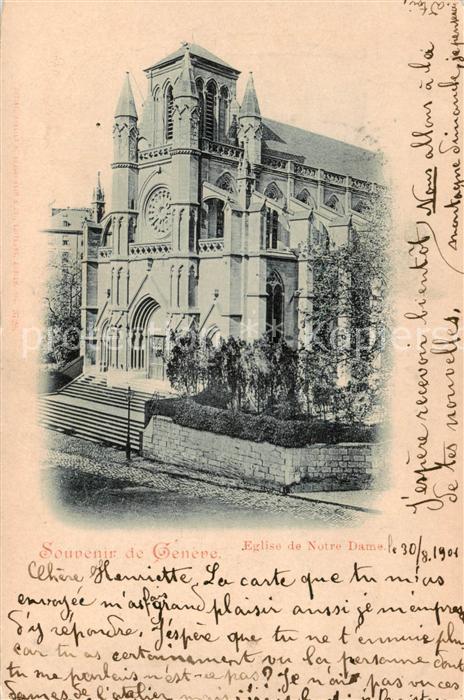 Souvenir de Genève.
Eglise de Notre Dame.
le 30/8.1901
Chère Henriette, La carte que tu m'as
envoyée m'a fais grand plaisir aussi je m'empres
d'y répondre. J'éspère que tu ne t'ennuie plus
car tu as certainement vu la personne dont
tu me parlais n'est-ce pas? Je n'ai pas vu ces
dames de l'atelier mais
J'éspère recevoir bientôt
de tes nouvelles,
Nous allons à la
montagne dimanche, je pense